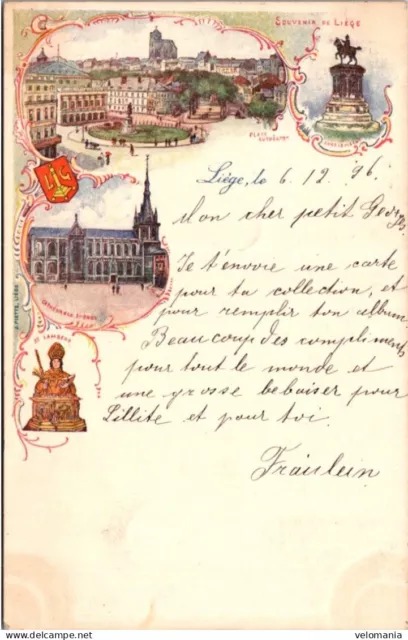 SOUVENIR DE LIÈGE
PLACE DU THÉATRE
Liège, le 6. 12. 96.
Mon cher petit Georges,
Je t'envoie une carte
pour ta collection, et
pour remplir ton album
Beaucoup des compliments
pour tout le monde et
une grosse bebaiser pour
Lillite et pour toi.
Fräulein
CATHÉDRALE ST PAUL
ST LAMBERT
LG
© Delcampe.net
velomania